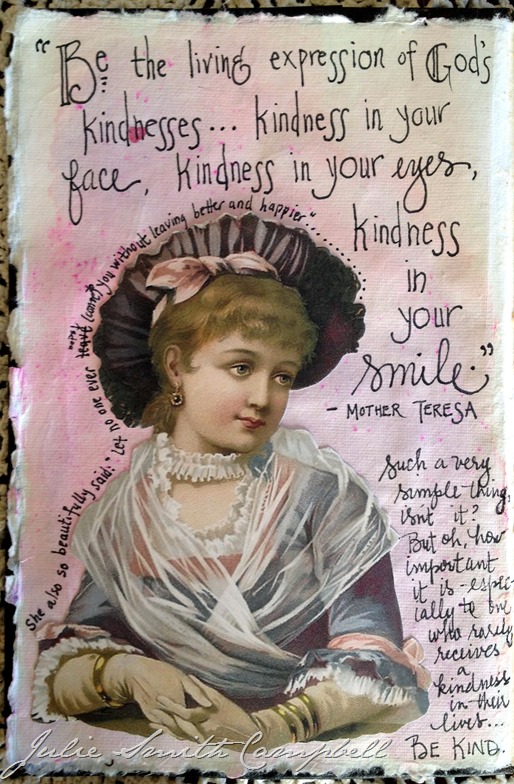 "Be the living expression of God's
kindnesses... kindness in your
face, kindness in your eyes,
kindness
in
your
smile."
- MOTHER TERESA
She also so beautifully said: "Let no one ever (come) to you without leaving better and happier"...
Such a very
simple thing,
isn't it?
But oh, how
important
it is - espec-
ially to one
who rarely
receives
a
kindness
in their
lives...
BE KIND.
Julie Smith Campbell